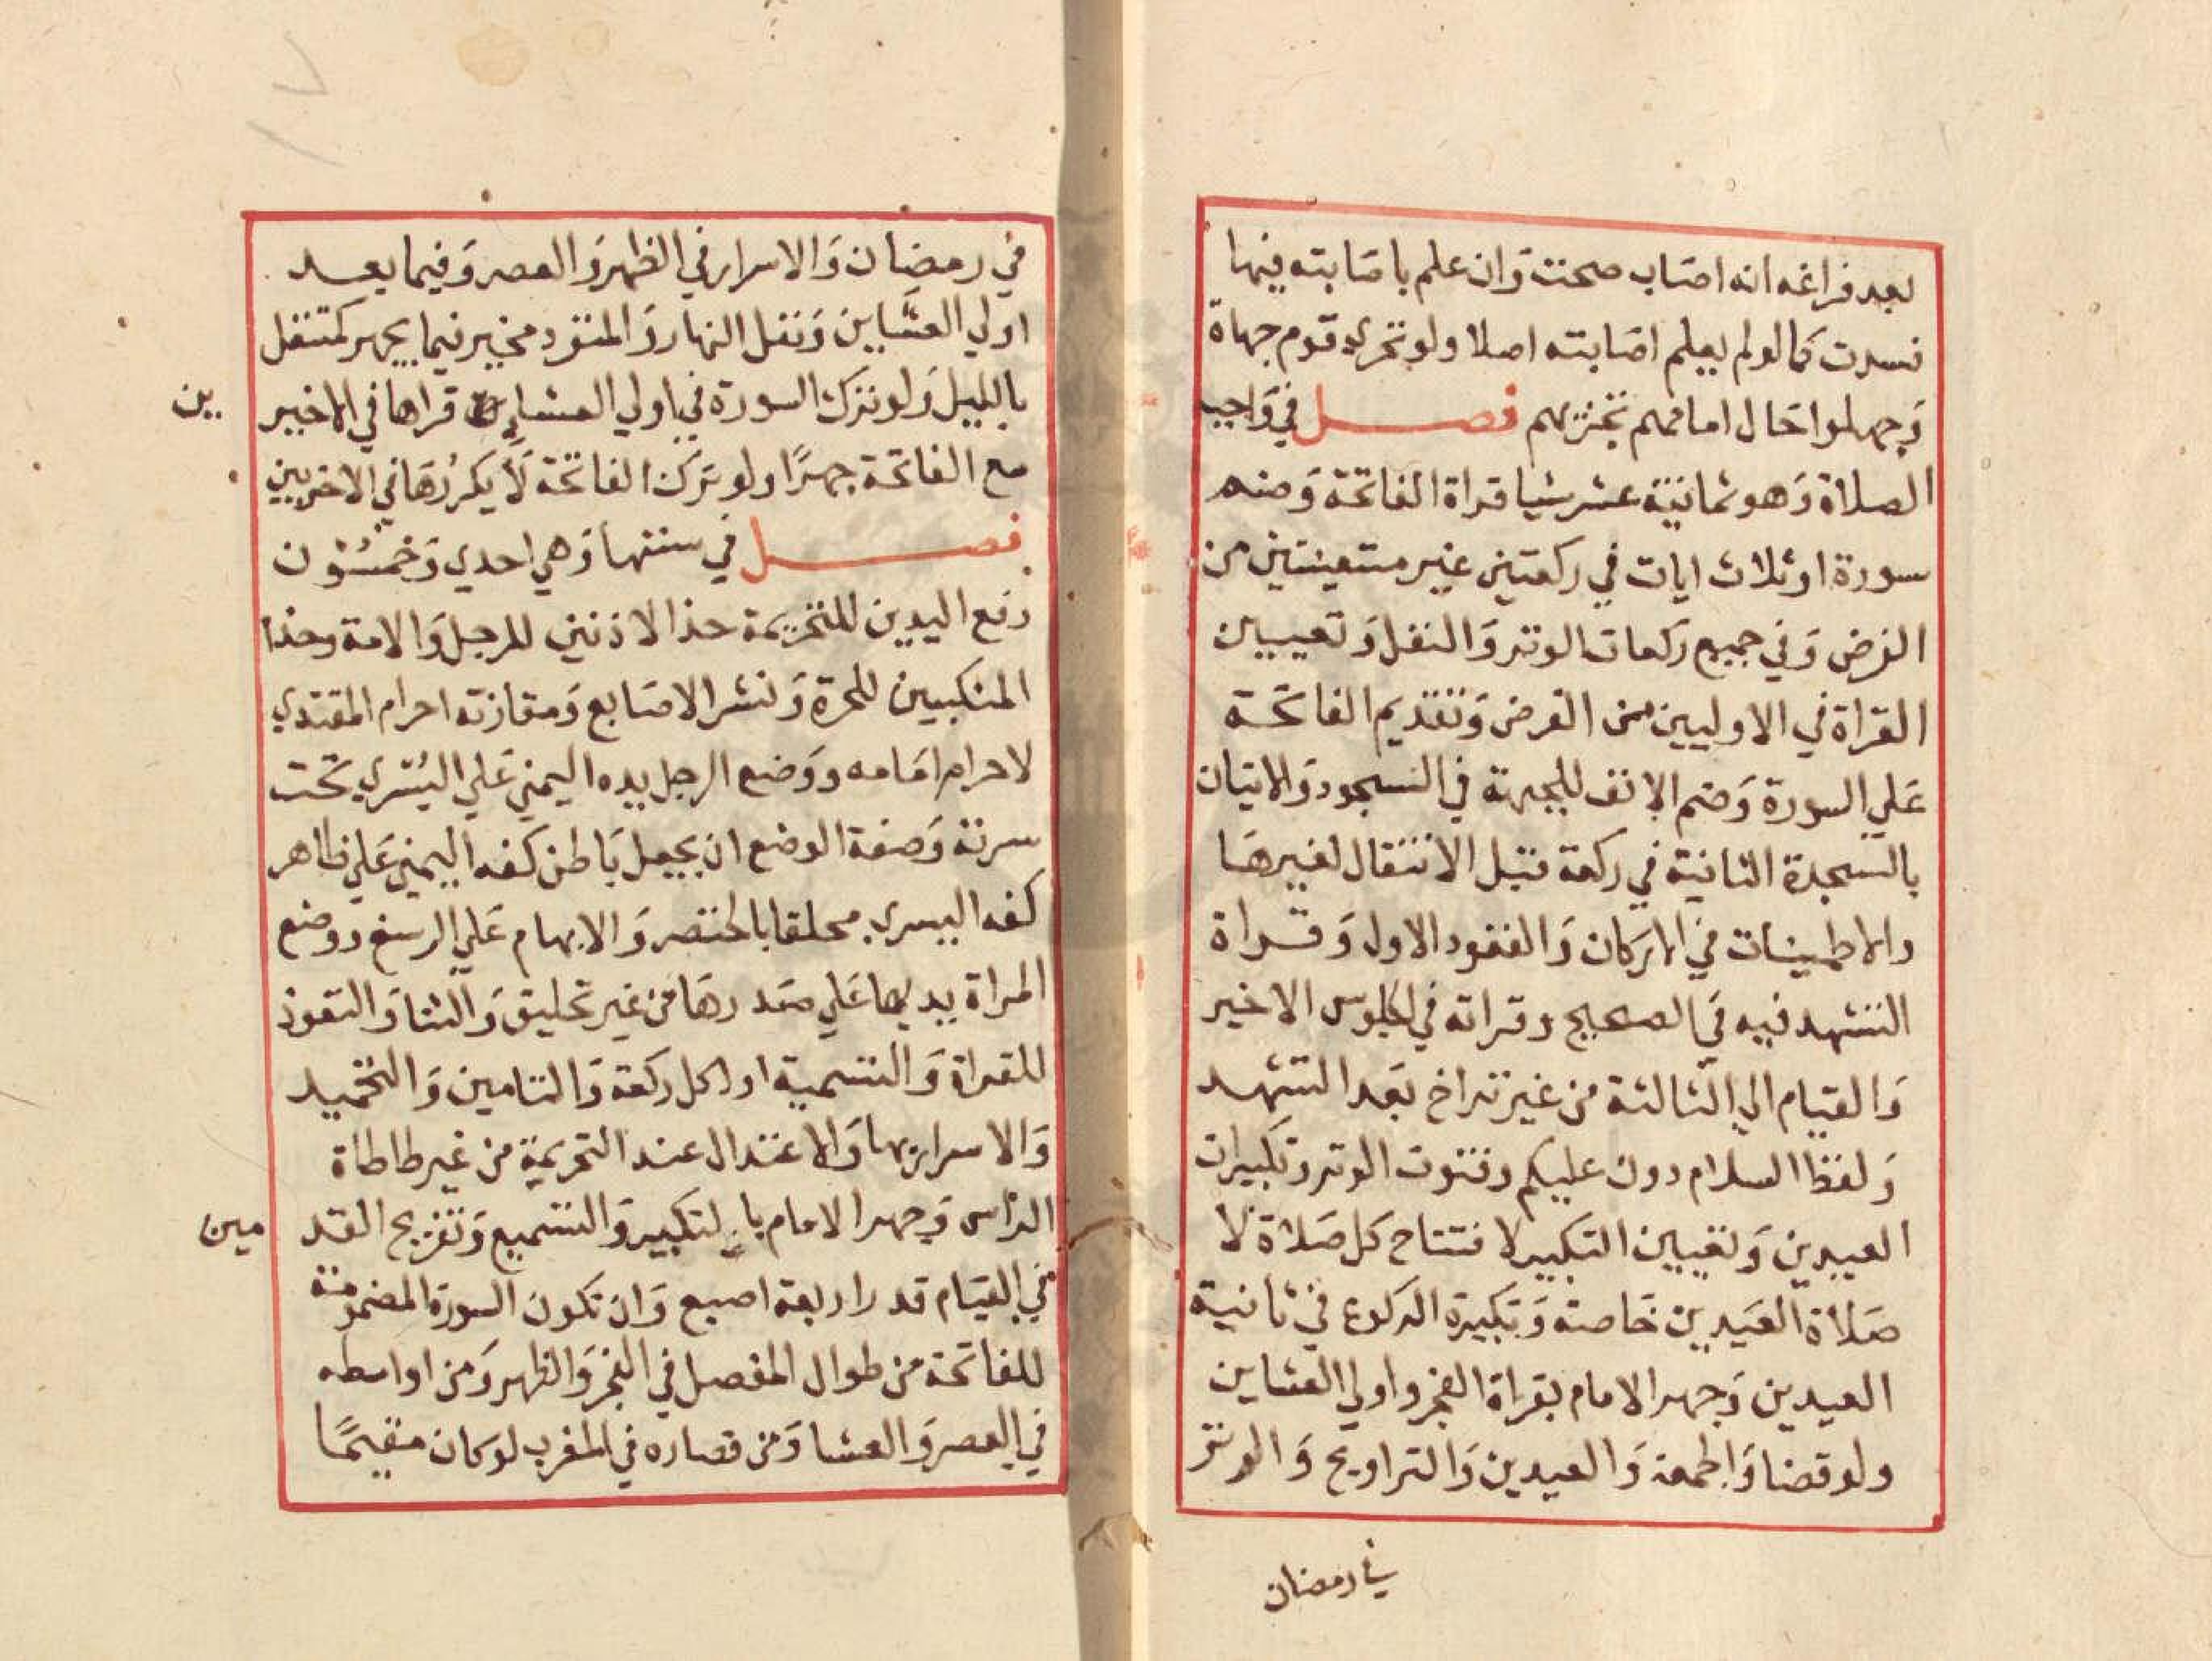 بعد فراغه انه اصاب صحت وان علم باصابته فيها
فسدت كما لو لم يعلم اصابته اصلا ولو تحري قوم جهاة
وجهلوا حال امامهم تجزيهم فصل في واجب
الصلاة وهو ثمانية عشر شيا قراة الفاتحة وضم
سورة او ثلاث ايات في ركعتين غير متعينتين من
الفرض وفي جميع ركعات الوتر والنفل وتعيين
القراة في الاوليين من الفرض وتقديم الفاتحة
علي السورة وضم الانف للجبهة في السجود والاتيان
بالسجدة الثانية في ركعة قبل الانتقال لغيرها
والاطمينان في الاركان والقعود الاول وقراة
التشهد فيه في الصحيح وقراته في الجلوس الاخير
والقيام الي الثالثة من غير تراخ بعد التشهد
ولفظ السلام دون عليكم وقنوت الوتر وتكبيرات
العيدين وتعيين التكبير لافتتاح كل صلاة لا
صلاة العيدين خاصة وتكبيرة الركوع في ثانية
العيدين وجهر الامام بقراة الفجر واولي العشاين
ولو قضا والجمعة والعيدين والتراويح والوتر
في رمضان
في رمضان والاسرار في الظهر والعصر وفيما بعد
اولي العشاين ونفل النهار والمنفرد مخير فيما يجهر كمتنفل
بالليل ولو ترك السورة في اولي العشاين قراها في الاخير
ين
مع الفاتحة جهرًا ولو ترك الفاتحة لا يكررها في الاخريين
فصل في سننها وهي احدي وخمسون
رفع اليدين للتحريمة حذا الاذنين للرجل والامة وحذا
المنكبين للحرة ونشر الاصابع ومقارنة احرام المقتدي
لاحرام امامه ووضع الرجل يده اليمني علي اليسري تحت
سرته وصفة الوضع ان يجعل باطن كفه اليمني علي ظاهر
كفه اليسري محلقا بالخنصر والابهام علي الرسغ ووضع
المراة يديها علي صدرها من غير تحليق والثنا والتعوذ
للقراة والتسمية اول كل ركعة والتامين والتحميد
والاسرار بها والاعتدال عند التحريمة من غير طاطاة
الراس وجهر الامام بالتكبير والتسميع وتفريج القد
مين
في القيام قدر اربعة اصبع وان تكون السورة المضمومة
للفاتحة من طوال المفصل في الفجر والظهر ومن اواسطه
في العصر والعشا ومن قصاره في المغرب لو كان مقيمًا